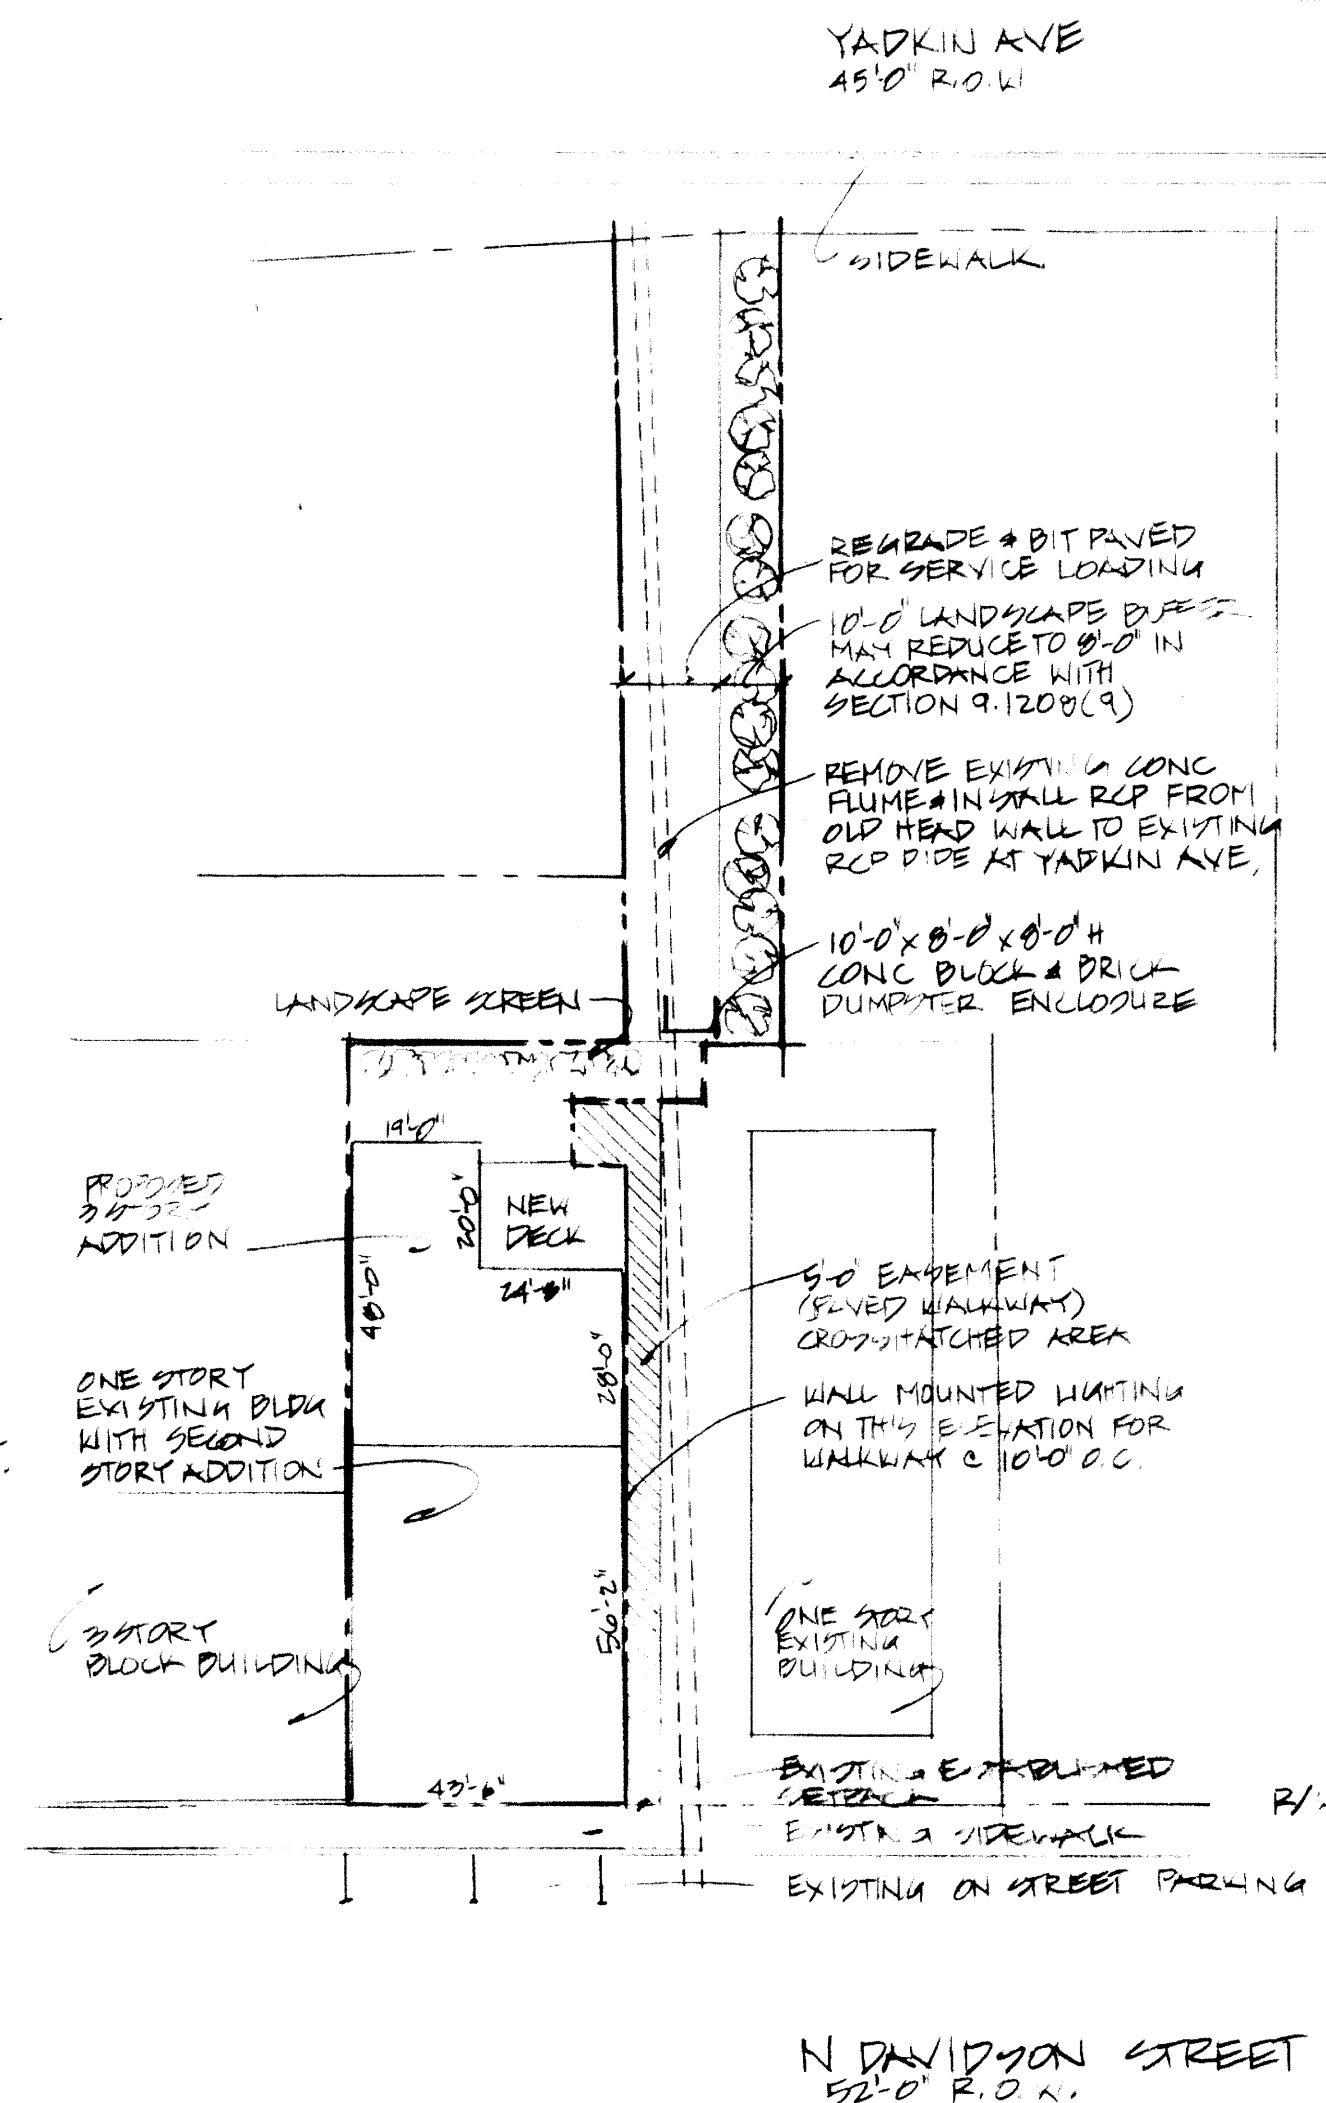 YADKIN AVE
45'-0" R.O.W
SIDEWALK
REGRADE & BIT PAVED
FOR SERVICE LOADING
10'-0" LANDSCAPE BUFFER
MAY REDUCE TO 8'-0" IN
ACCORDANCE WITH
SECTION 9.1208(9)
REMOVE EXISTING CONC
FLUME & INSTALL RCP FROM
OLD HEAD WALL TO EXISTING
RCP PIPE AT YADKIN AVE.
10'-0" x 8'-0" x 8'-0" H
CONC BLOCK & BRICK
DUMPSTER ENCLOSURE
LANDSCAPE SCREEN
19'-0"
PROPOSED
3 STORY
ADDITION
20'-0"
NEW
DECK
24'-6"
48'-0"
28'-0"
5'-0" EASEMENT
(PAVED WALKWAY)
CROSSHATCHED AREA
ONE STORY
EXISTING BLDG
WITH SECOND
STORY ADDITION
WALL MOUNTED LIGHTING
ON THIS ELEVATION FOR
WALKWAY @ 10'-0" O.C.
56'-2"
3 STORY
BLOCK BUILDING
ONE STORY
EXISTING
BUILDING
43'-6"
EXISTING ESTABLISHED
SETBACK
R/
EXISTING SIDEWALK
EXISTING ON STREET PARKING
N DAVIDSON STREET
52'-0" R.O.W.